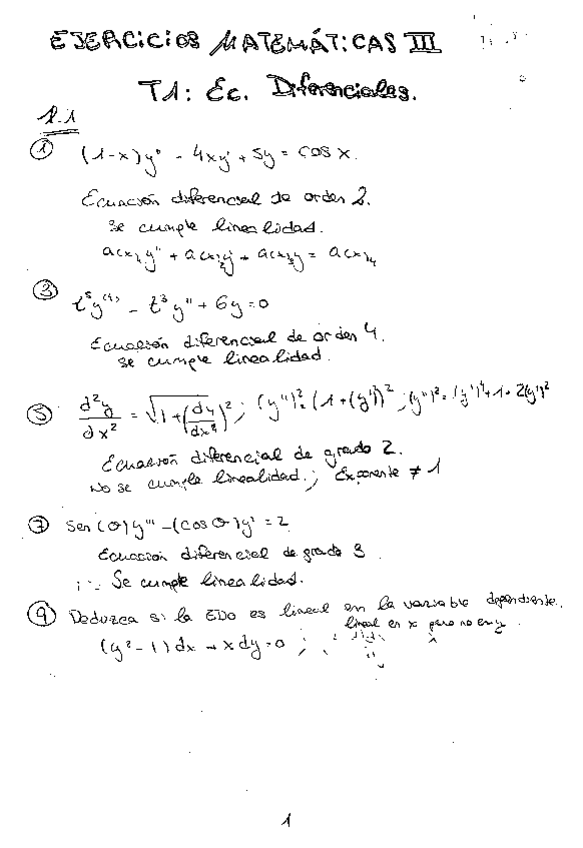 EJERCICIOS MATEMÁTICAS III
T1: Ec. Diferenciales.
1.1
① (1-x)y'' - 4xy' + 5y = cos x.
Ecuación diferencial de orden 2.
se cumple linealidad.
a(x)₁y'' + a(x)₂y' + a(x)₃y = a(x)₄
③ t⁵y⁽⁴⁾ - t³y'' + 6y = 0
Ecuación diferencial de orden 4.
se cumple linealidad.
⑤ d²y/dx² = √(1+(dy/dx²)²) ; (y'')² = (1+(y')²)² ; (y'')² = (y')⁴ + 1 + 2(y')²
Ecuación diferencial de grado 2.
No se cumple linealidad. ; Exponente ≠ 1
⑦ Sen(θ)y''' - (cos θ)y' = 2
Ecuación diferencial de grado 3.
Se cumple linealidad.
⑨ Deduzca si la EDO es lineal en la variable dependiente.
lineal en x pero no en y.
(y² - 1)dx + xdy = 0 ;
1